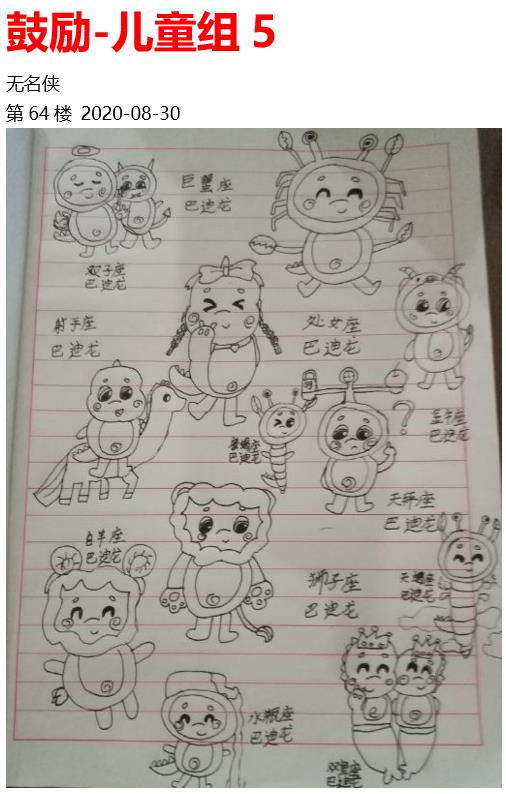 鼓励-儿童组 5
无名侠
第 64 楼 2020-08-30
巨蟹座
巴迪龙
双子座
巴迪龙
射手座
巴迪龙
处女座
巴迪龙
?
金牛座
巴迪龙
魔羯座
巴迪龙
天秤座
巴迪龙
白羊座
巴迪龙
狮子座
巴迪龙
天蝎座
巴迪龙
水瓶座
巴迪龙
双鱼座
巴迪龙